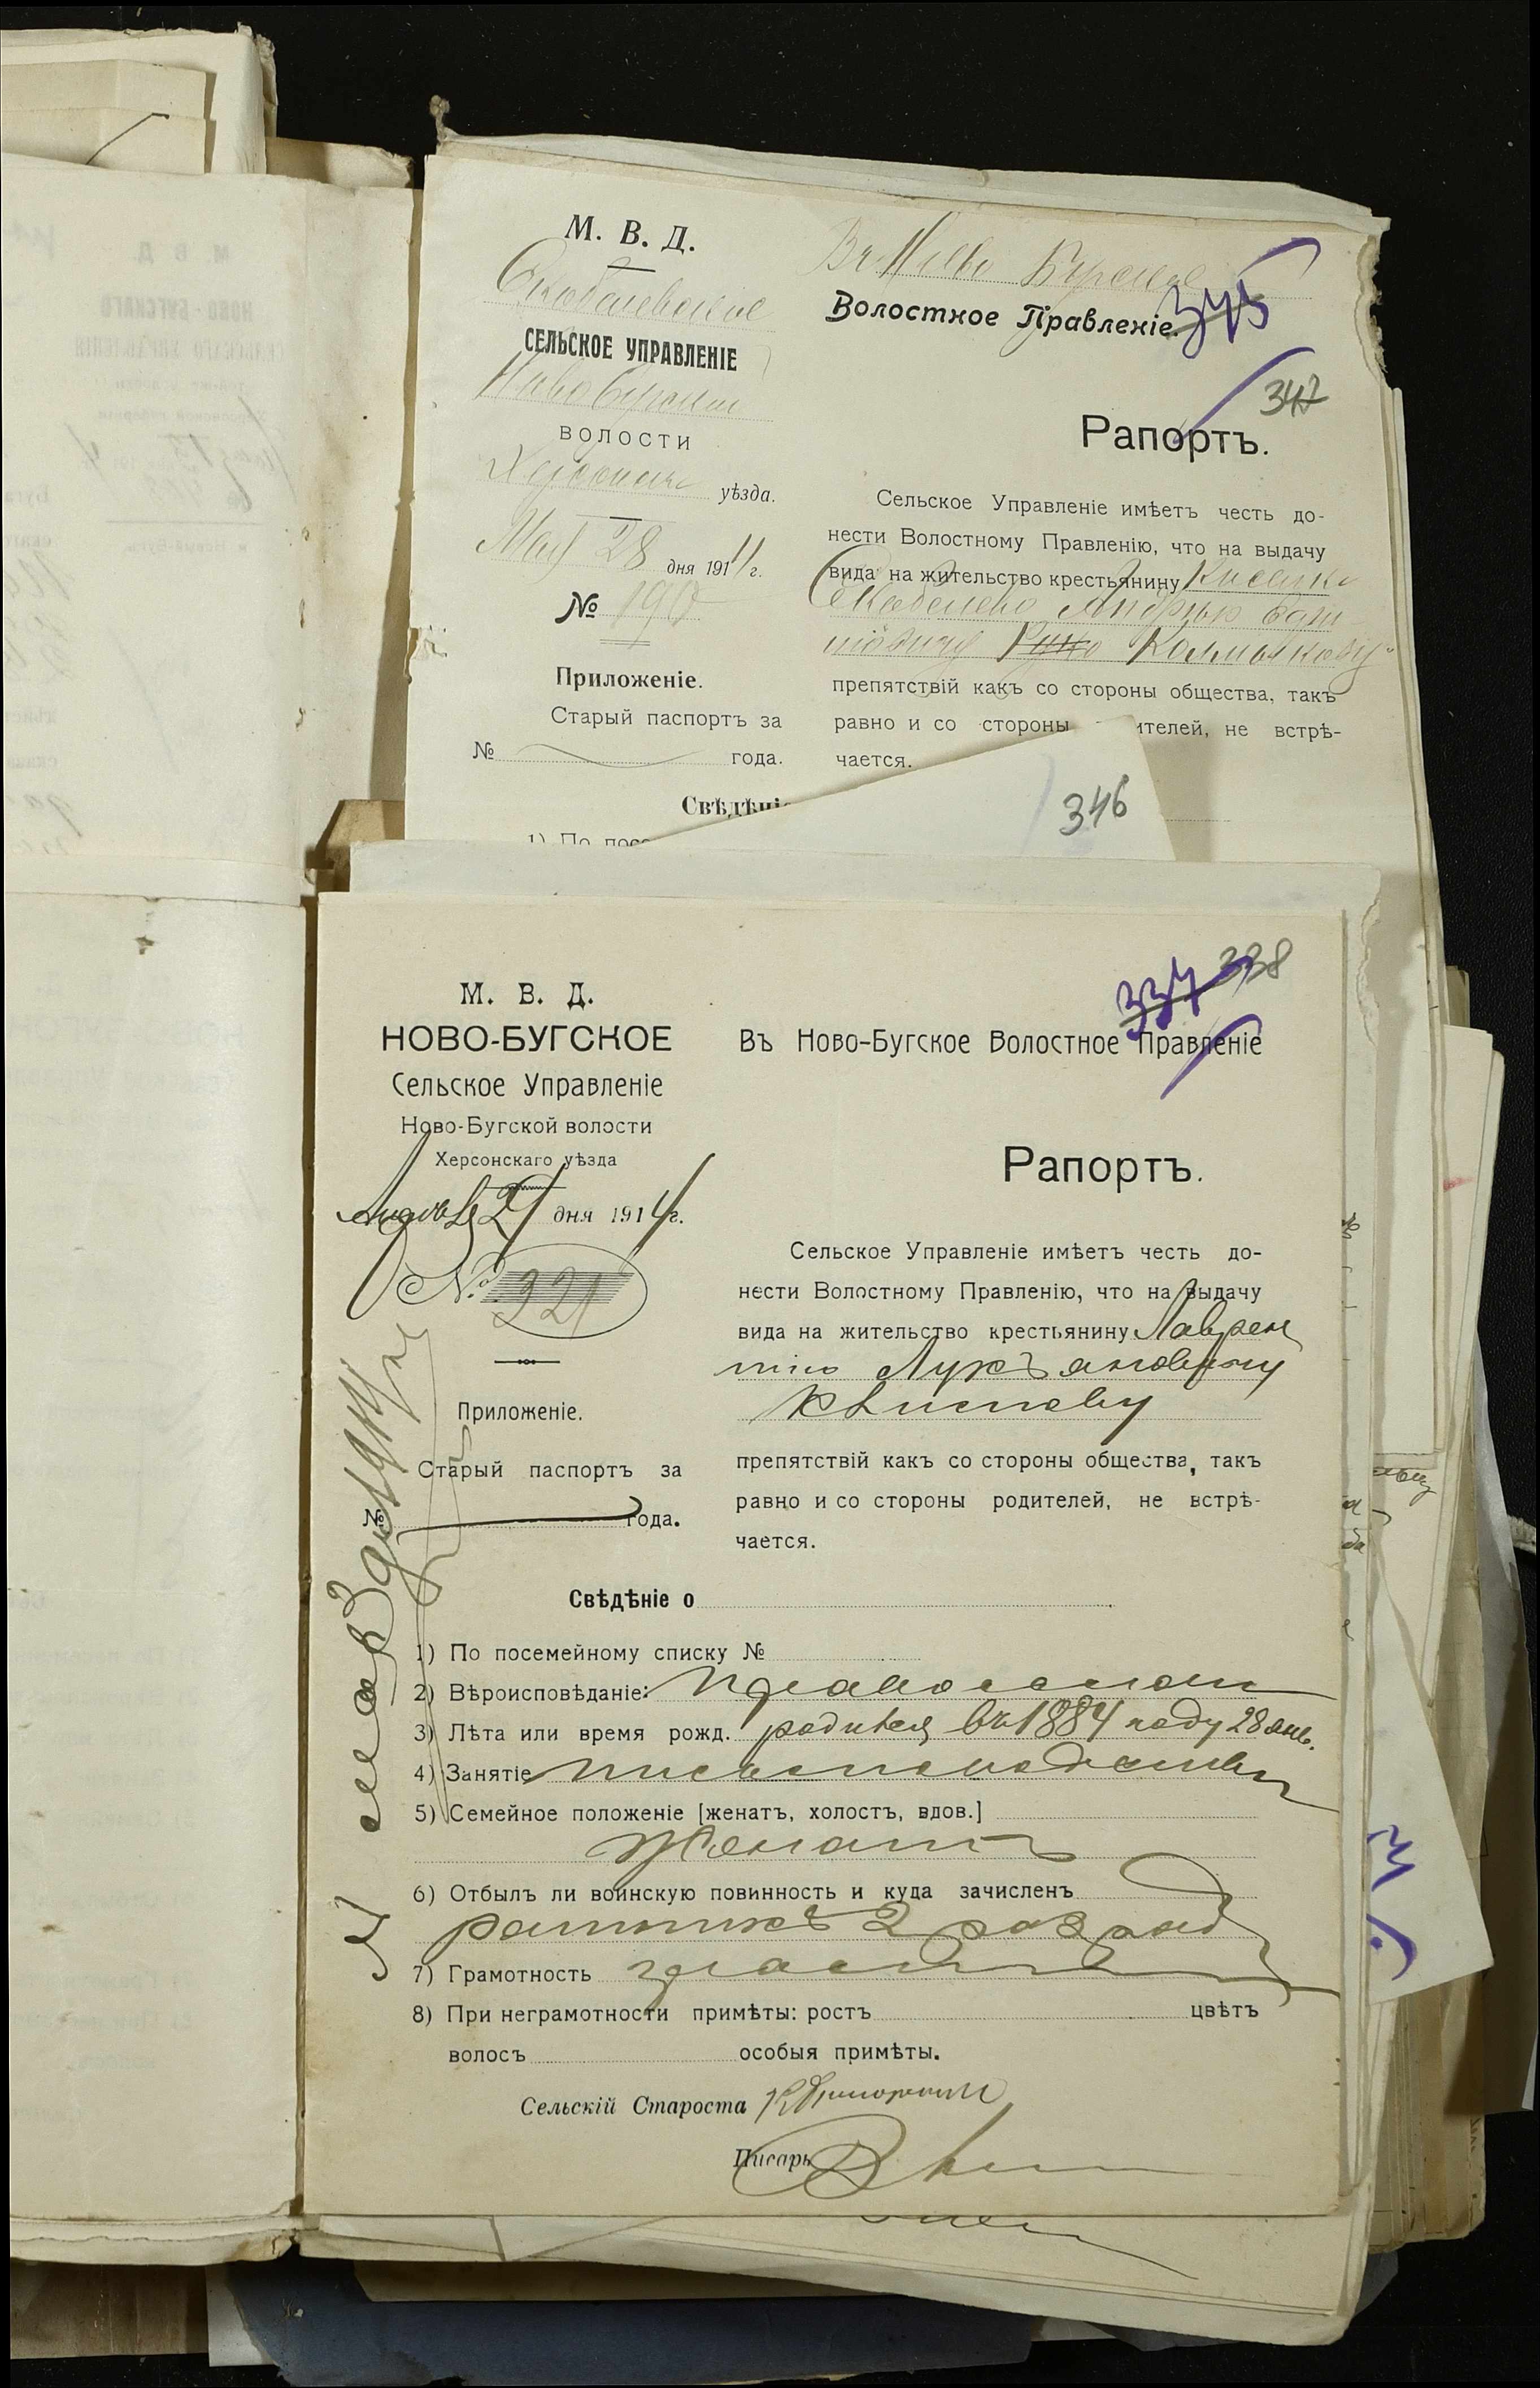 М. В. Д.
Скобелевское
СЕЛЬСКОЕ УПРАВЛЕНІЕ
Ново Бугской
ВОЛОСТИ
Херсонск уѣзда.
Мая 28 дня 1911 г.
№ 190
Приложеніе.
Старый паспортъ за
№ года.
Въ Ново Бугское
Волостное Правленіе.
345
347
Рапортъ.
Сельское Управленіе имѣетъ честь до-
нести Волостному Правленію, что на выдачу
вида на жительство крестьянину
Скобелево Андрею
Колмыкову
препятствій какъ со стороны общества, такъ
равно и со стороны ителей, не встрѣ-
чается.
Свѣдѣніе
1) По посе
346
М. В. Д.
НОВО-БУГСКОЕ
Сельское Управленіе
Ново-Бугской волости
Херсонскаго уѣзда
дня 1914 г.
№ 221
Приложеніе.
Старый паспортъ за
№ года.
337 338
Въ Ново-Бугское Волостное Правленіе
Рапортъ.
Сельское Управленіе имѣетъ честь до-
нести Волостному Правленію, что на выдачу
вида на жительство крестьянину Лаврен
тію Лукъяновичу
препятствій какъ со стороны общества, такъ
равно и со стороны родителей, не встрѣ-
чается.
Свѣдѣніе о
1) По посемейному списку №
2) Вѣроисповѣданіе: православн
3) Лѣта или время рожд. родился въ 1884 году 28 янв.
4) Занятіе письмоводитель
5) Семейное положеніе [женатъ, холостъ, вдов.]
Женатъ
6) Отбылъ ли воинскую повинность и куда зачисленъ
ратникъ 2 разряд
7) Грамотность
8) При неграмотности примѣты: ростъ цвѣтъ
волосъ особыя примѣты.
Сельскій Староста
Писарь